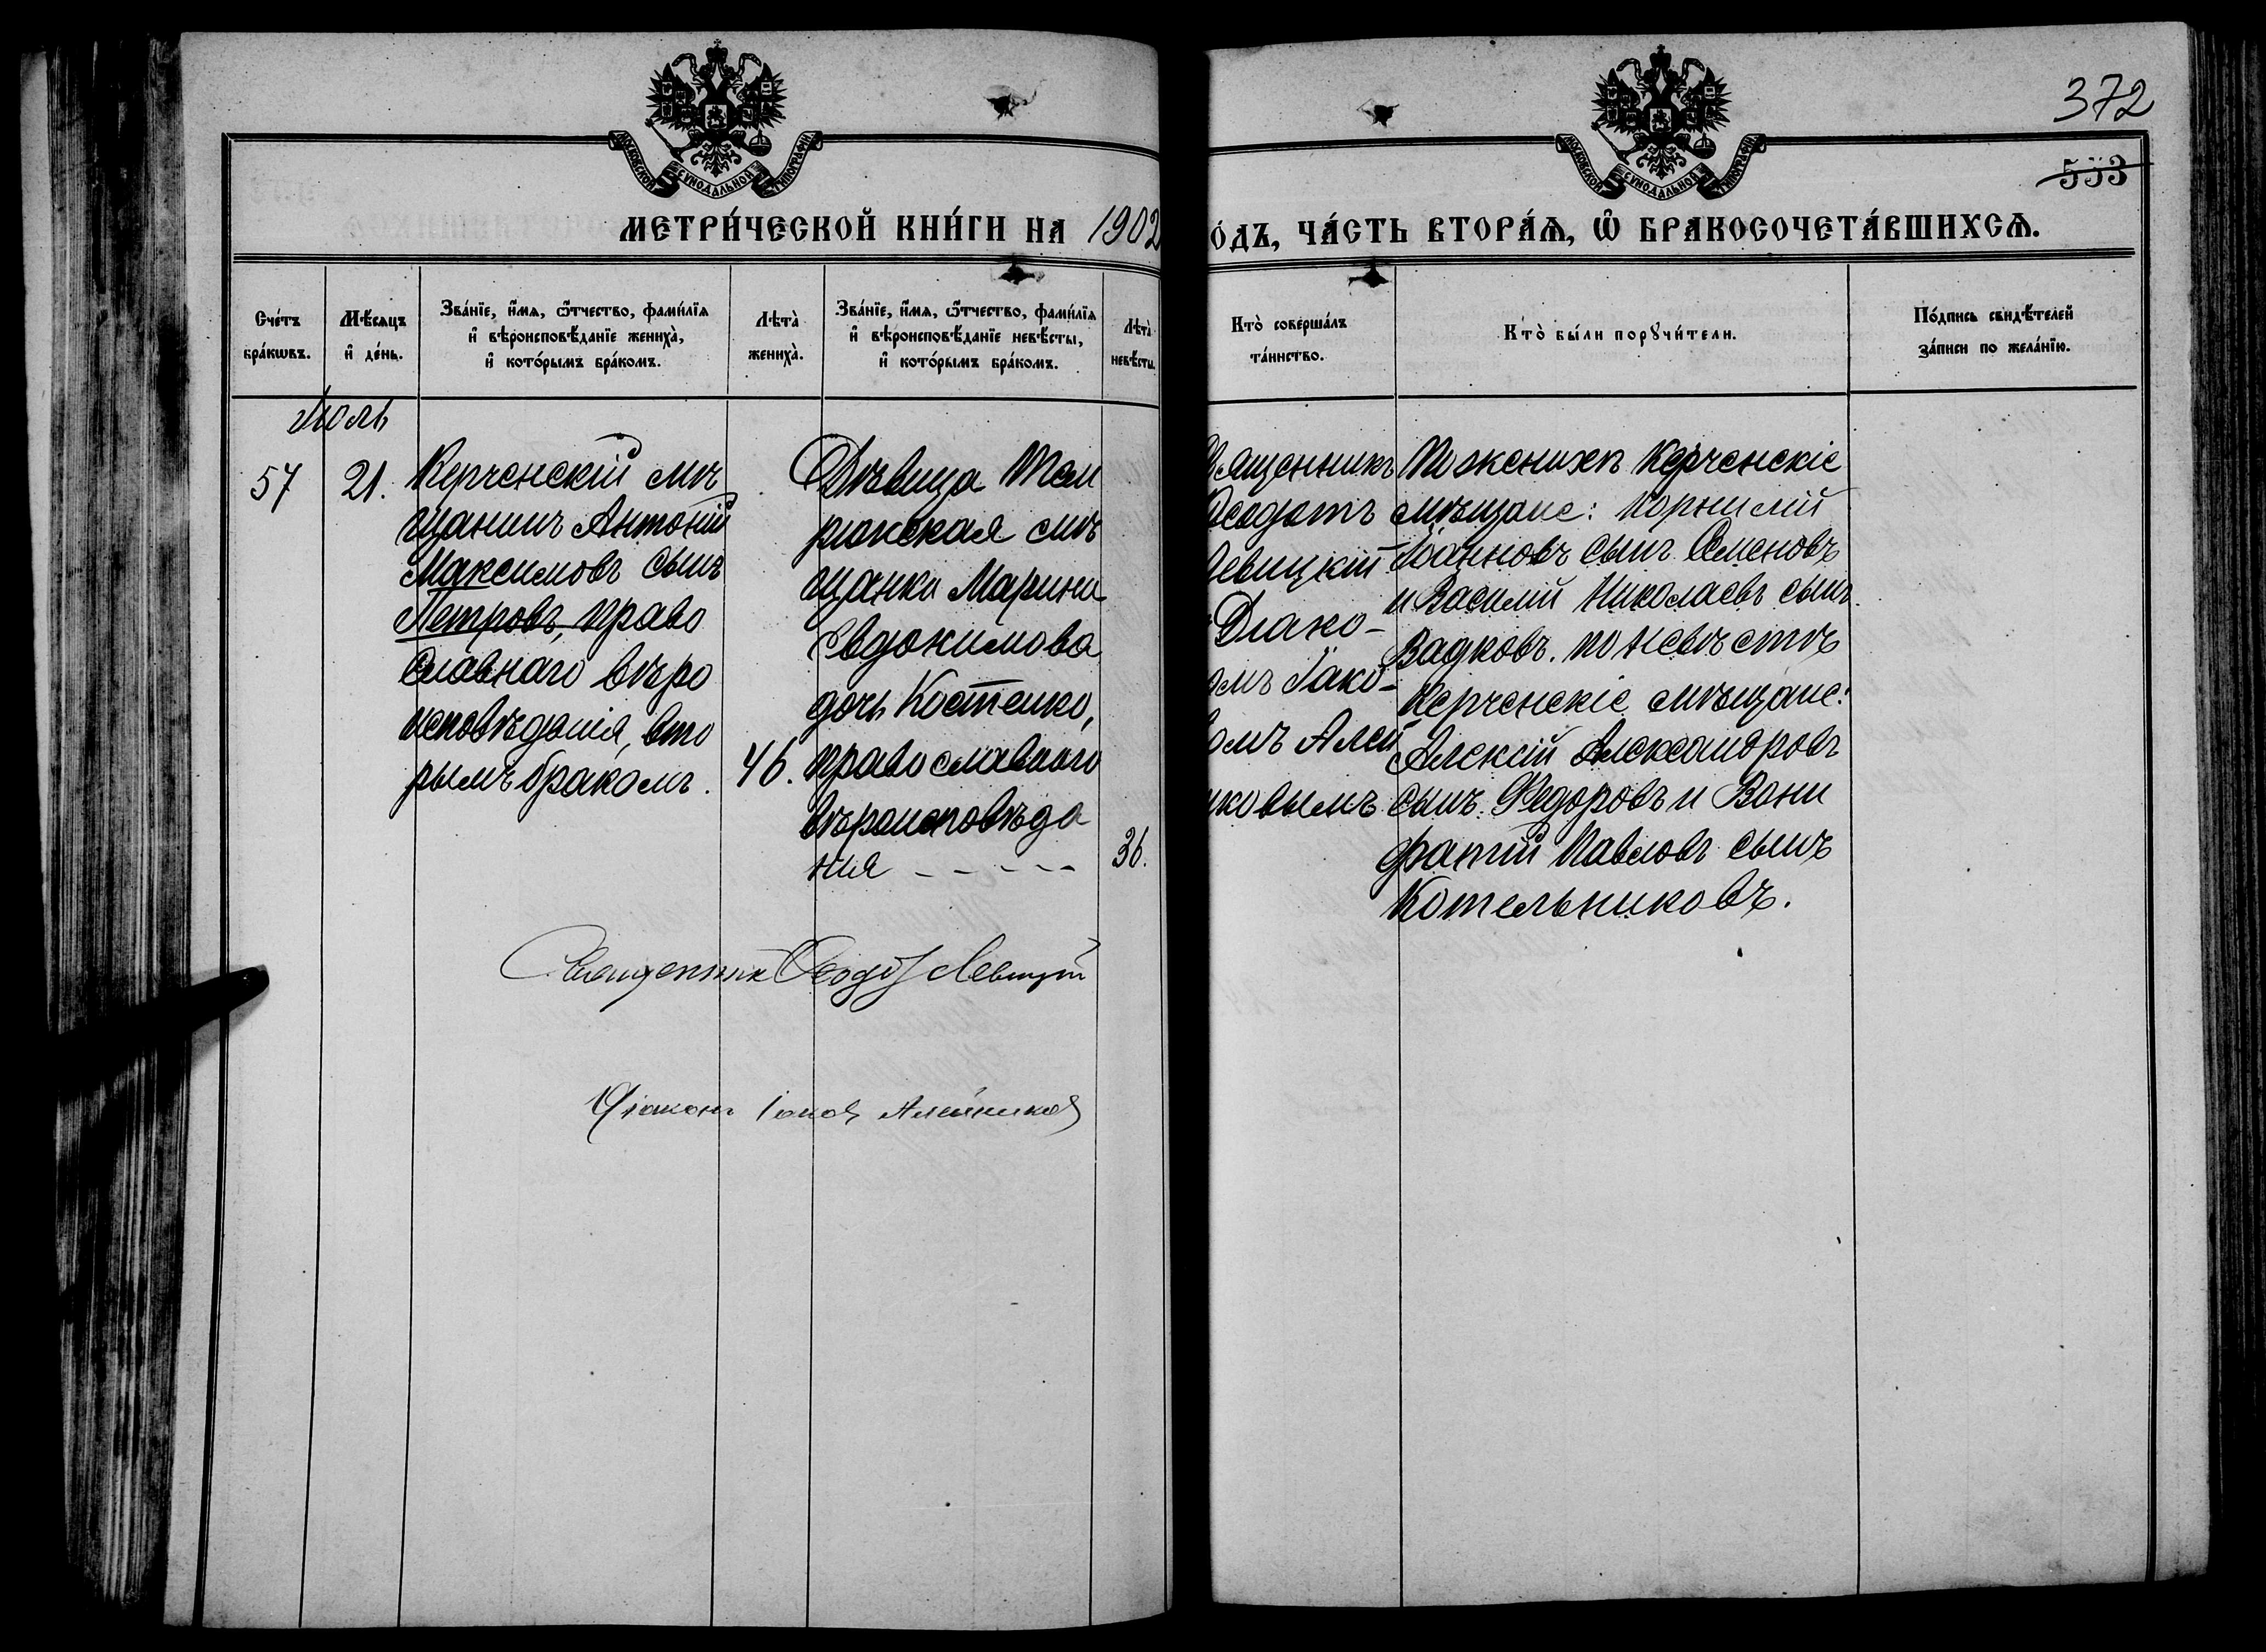 372
553
МОСКОВСКОЙ СѴНОДАЛЬНОЙ ТИПОГРАФІИ
МОСКОВСКОЙ СѴНОДАЛЬНОЙ ТИПОГРАФІИ
МЕТРИ́ЧЕСКОЙ КНИ́ГИ НА 1902
О́ДЪ, ЧА́СТЬ ВТОРА́Ѧ, Ѽ БРАКОСОЧЕТА́ВШИХСѦ.
Сче́тъ
бра́кѡвъ.
Мѣ́сяцъ
и҆ де́нь.
Зва́нїе, и҆́мя, ѻ҆́тчество, фами́лїя
и҆ вѣроисповѣ́данїе жениха̀,
и҆ кото́рымъ бра́комъ.
Лѣта̀
жениха̀.
Зва́нїе, и҆́мя, ѻ҆́тчество, фами́лїя
и҆ вѣроисповѣ́данїе невѣ́сты,
и҆ кото́рымъ бра́комъ.
Лѣта̀
невѣ́сты.
Кто̀ соверша́лъ
та́инство.
Кто̀ бы́ли порꙋчи́тели.
По́дпись свидѣ́телей
за́писи по жела́нїю.
Июль
57
21.
Керченскій мѣ
щанинъ Антоній
Максимовъ сынъ
Петровъ, право
славнаго вѣро
исповѣданія, вто
рымъ бракомъ.
46.
Дѣвица Тем
рюкская мѣ
щанка Марина
Евдокимова
дочь Костенко,
православнаго
вѣроисповѣда
нія - - - - -
36.
Священникъ
Ѳеодотъ
Левицкій
Діако-
омъ Іако-
вомъ Алей
никовымъ
По женихѣ Керченскіе
мѣщане: Корнилій
Іоанновъ сынъ Семеновъ
и Василій Николаевъ сынъ
Вадковъ. По невѣстѣ
Керченскіе мѣщане:
Алексій Александровъ
сынъ Федоровъ и Вони
фатій Павловъ сынъ
Котельниковъ.
Священникъ Ѳеодотъ Левицкій
Діаконъ Іаковъ Алейниковъ